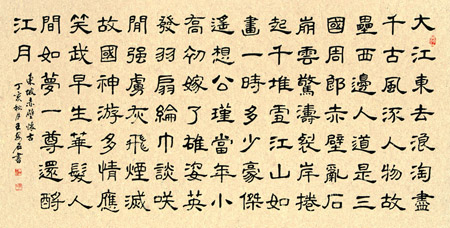 大江東去浪淘盡
千古風流人物故
壘西邊人道是三
國周郎赤壁亂石
崩雲驚濤裂岸捲
起千堆雪江山如
畫一時多少豪傑
遙想公瑾當年小
喬初嫁了雄姿英
發羽扇綸巾談咲
間強虜灰飛煙滅
故國神游多情應
笑我早生華髮人
間如夢一尊還酹
江月
東坡赤壁懷古
丁亥秋月王石書